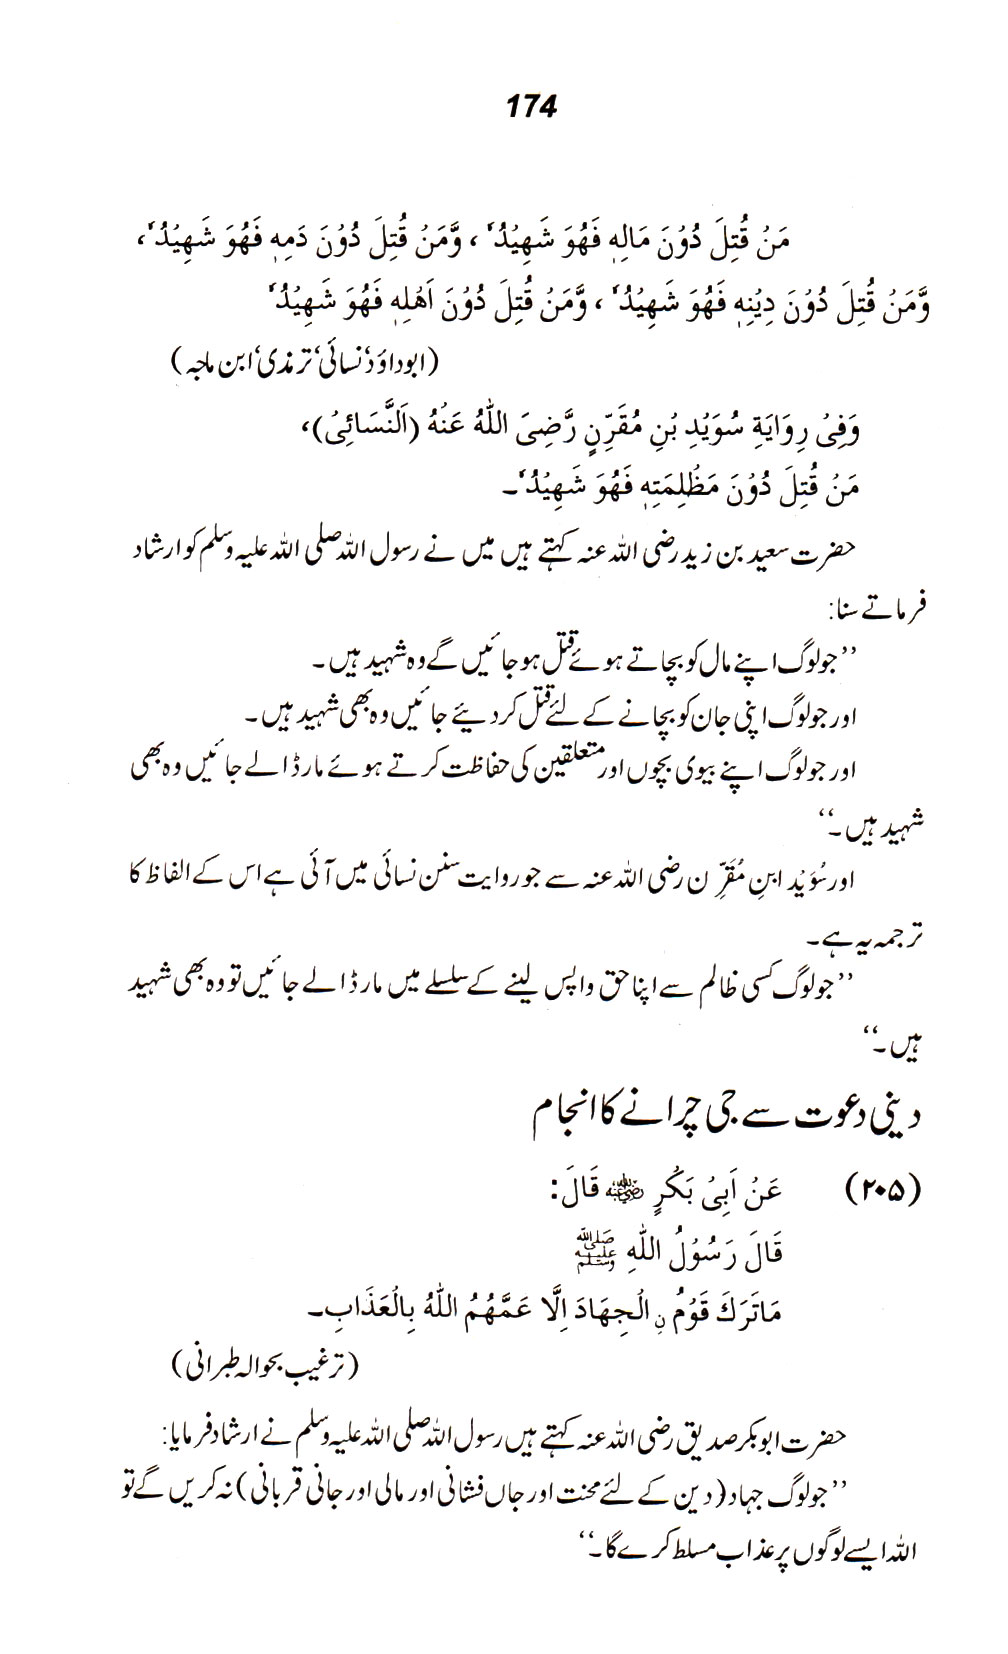 174
مَنْ قُتِلَ دُوْنَ مَالِهٖ فَهُوَ شَهِيْدٌ، وَّمَنْ قُتِلَ دُوْنَ دَمِهٖ فَهُوَ شَهِيْدٌ،
وَّمَنْ قُتِلَ دُوْنَ دِيْنِهٖ فَهُوَ شَهِيْدٌ، وَّمَنْ قُتِلَ دُوْنَ اَهْلِهٖ فَهُوَ شَهِيْدٌ
(ابوداؤد، نسائی، ترمذی، ابن ماجہ)
وَفِيْ رِوَايَةِ سُوَيْدِ بْنِ مُقَرِّنٍ رَّضِيَ اللّٰهُ عَنْهُ (اَلنَّسَائِيْ)،
مَنْ قُتِلَ دُوْنَ مَظْلِمَتِهٖ فَهُوَ شَهِيْدٌ۔
حضرت سعید بن زید رضی اللہ عنہ کہتے ہیں میں نے رسول اللہ صلی اللہ علیہ وسلم کو ارشاد
فرماتے سنا:
’’جو لوگ اپنے مال کو بچاتے ہوئے قتل ہو جائیں گے وہ شہید ہیں۔
اور جو لوگ اپنی جان کو بچانے کے لئے قتل کر دیئے جائیں وہ بھی شہید ہیں۔
اور جو لوگ اپنے بیوی بچوں اور متعلقین کی حفاظت کرتے ہوئے مار ڈالے جائیں وہ بھی
شہید ہیں۔‘‘
اور سُوَیْد ابنِ مُقَرِّن رضی اللہ عنہ سے جو روایت سنن نسائی میں آئی ہے اس کے الفاظ کا
ترجمہ یہ ہے۔
’’جو لوگ کسی ظالم سے اپنا حق واپس لینے کے سلسلے میں مار ڈالے جائیں تو وہ بھی شہید
ہیں۔‘‘
دینی دعوت سے جی چرانے کا انجام
(۲۰۵) عَنْ اَبِيْ بَكْرٍ رضی اللہ عنہ قَالَ:
قَالَ رَسُوْلُ اللّٰهِ ﷺ
مَاتَرَكَ قَوْمُ نِ الْجِهَادَ اِلَّا عَمَّهُمُ اللّٰهُ بِالْعَذَابِ۔
(ترغیب بحوالہ طبرانی)
حضرت ابوبکر صدیق رضی اللہ عنہ کہتے ہیں رسول اللہ صلی اللہ علیہ وسلم نے ارشاد فرمایا:
’’جو لوگ جہاد (دین کے لئے محنت اور جاں فشانی اور مالی اور جانی قربانی) نہ کریں گے تو
اللہ ایسے لوگوں پر عذاب مسلط کرے گا۔‘‘